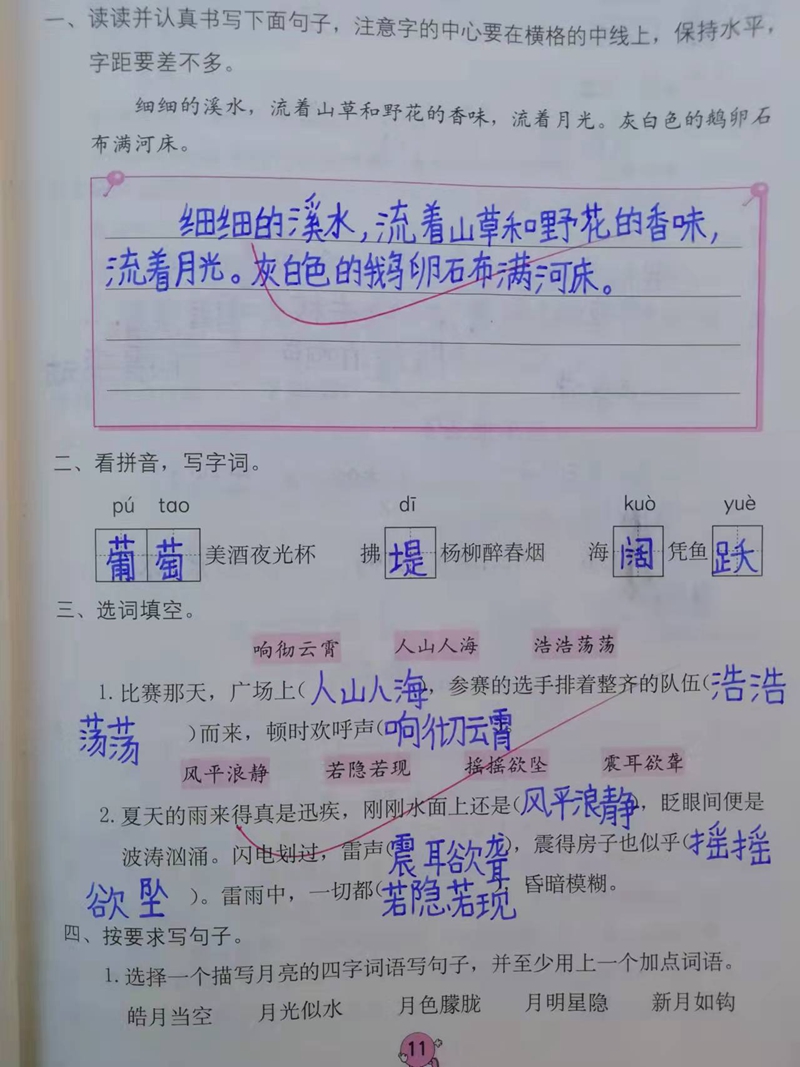 一、读读并认真书写下面句子，注意字的中心要在横格的中线上，保持水平，
字距要差不多。
细细的溪水，流着山草和野花的香味，流着月光。灰白色的鹅卵石
布满河床。
细细的溪水，流着山草和野花的香味，
流着月光。灰白色的鹅卵石布满河床。
二、看拼音，写字词。
pú tao dī kuò yuè
葡萄美酒夜光杯 拂堤杨柳醉春烟 海阔凭鱼跃
三、选词填空。
响彻云霄 人山人海 浩浩荡荡
1. 比赛那天，广场上(人山人海)，参赛的选手排着整齐的队伍(浩浩
荡荡)而来，顿时欢呼声(响彻云霄
风平浪静 若隐若现 摇摇欲坠 震耳欲聋
2. 夏天的雨来得真是迅疾，刚刚水面上还是(风平浪静)，眨眼间便是
波涛汹涌。闪电划过，雷声(震耳欲聋)，震得房子也似乎(摇摇
欲坠)。雷雨中，一切都(若隐若现)，昏暗模糊。
四、按要求写句子。
1. 选择一个描写月亮的四字词语写句子，并至少用上一个加点词语。
皓月当空 月光似水 月色朦胧 月明星隐 新月如钩
11